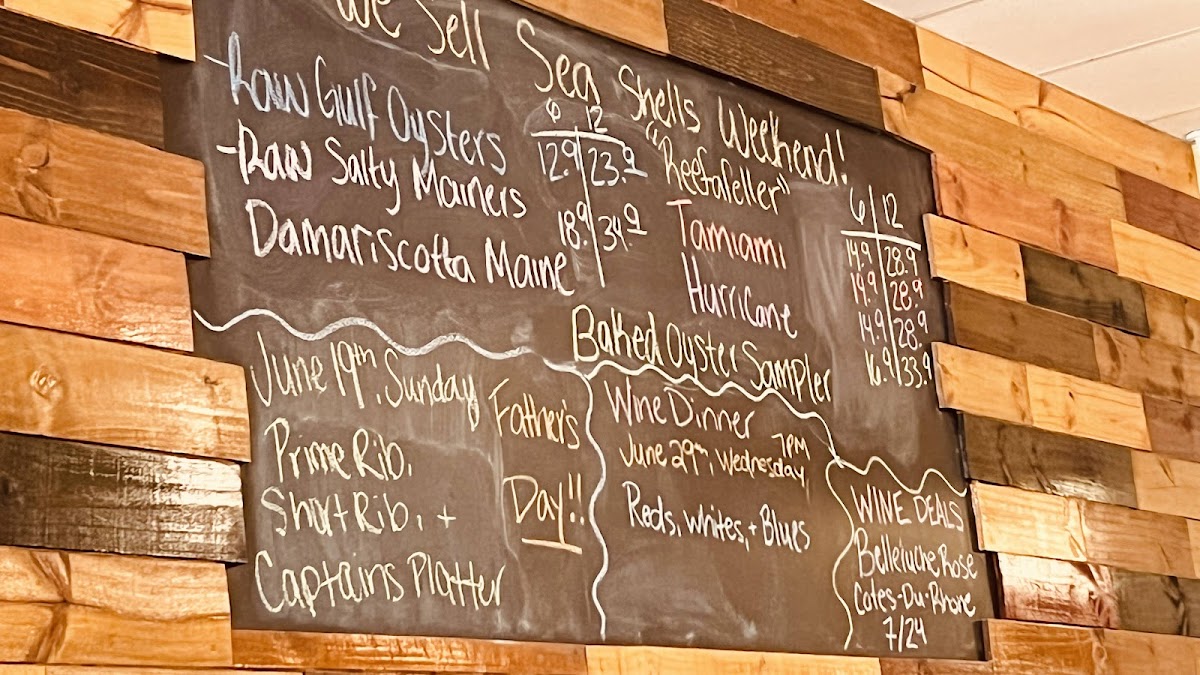 We Sell Sea Shells Weekend!
6 12
- Raw Gulf Oysters 12.9 23.9
- Raw Salty Mainers 18.9 34.9
Damariscotta Maine
6 12
"Reefafeller" 14.9 28.9
Tamiami 14.9 28.9
Hurricane 14.9 28.9
Baked Oyster Sampler 16.9 33.9
June 19th, Sunday
Prime Rib,
Short Rib, +
Captains Platter
Father's
Day!!
Wine Dinner
June 29th, Wednesday, 7PM
Reds, Whites, + Blues
WINE DEALS
Belleruche Rose
Cotes-Du-Rhone
7/24